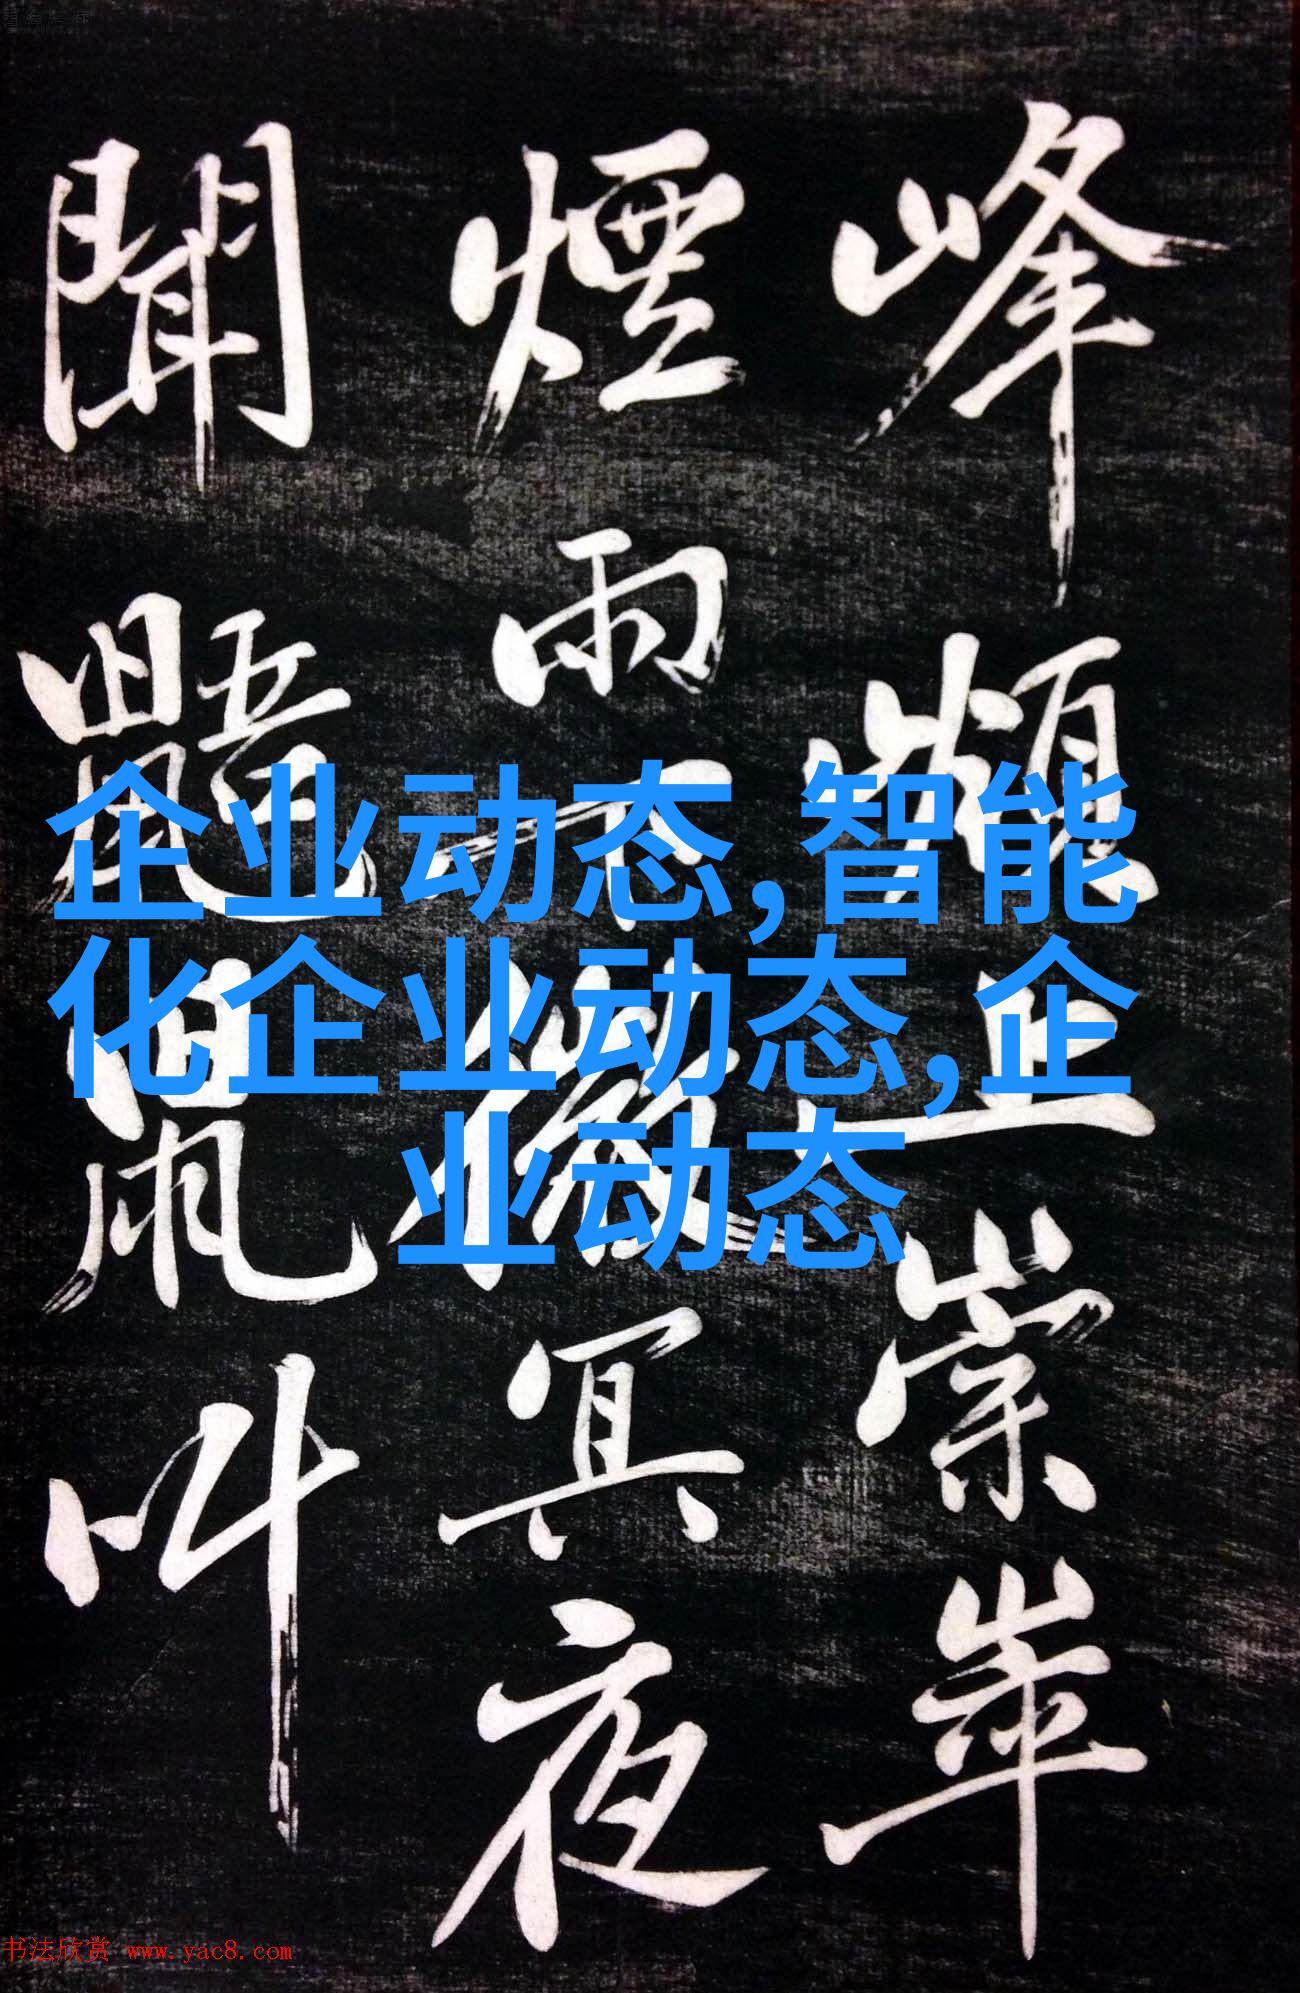 峰崇崒
煙雨下微冥夜
聞鼯鼠叫
企业动态,智能
化企业动态,企
业动态
书法欣赏 www.yac8.com